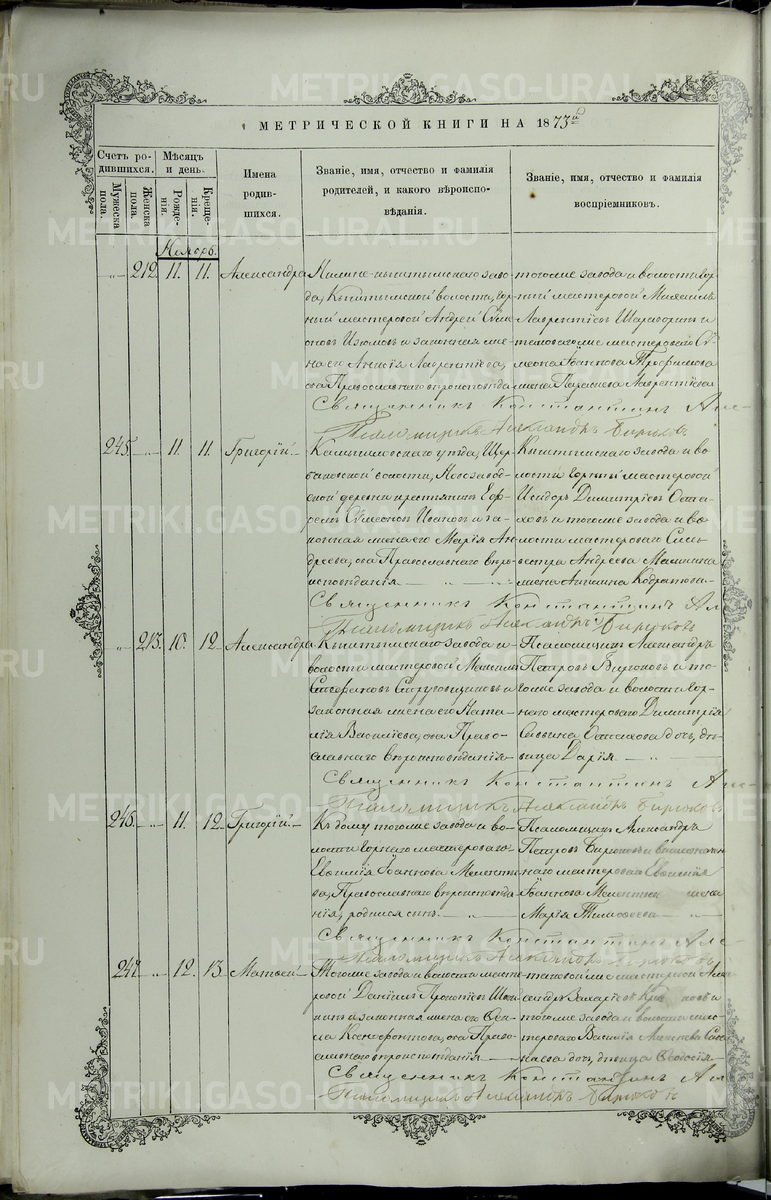 METRIKI.GASO-URAL.RU
МЕТРИЧЕСКОЙ КНИГИ НА 1873й
Счетъ родившихся.
Мужеска пола.
Женска пола.
Мѣсяцъ и день.
Рожденія.
Крещенія.
Имена родившихся.
Званіе, имя, отчество и фамилія родителей, и какого вѣроисповѣданія.
Званіе, имя, отчество и фамилія воспріемниковъ.
Ноябрь.
„ 212. 11. 11. Александра
Нижне-Кыштымскаго заво-
да, Кыштымской волости, гор-
ный мастеровой Андрей Сѵме-
оновъ Изюмовъ и законная же-
на его Анисія Лаврентіева,
оба Православнаго вѣроисповѣда
тогоже завода и волости гор-
ный мастеровой Михаилъ
Лаврентіевъ и
таковагоже мастероваго Сѵ-
меона Іоаннова Трофимова
жена Параскева Лаврентіева
Священникъ Константинъ
Псаломщикъ Александръ Бирюковъ
245. „ 11. 11. Григорій.
Камышловскаго уѣзда,
волости, Новозавод-
ской деревни крестьянинъ Еф-
ремъ Сѵмеоновъ и за-
конная жена его Марія Ан
дреева, оба Православнаго вѣро-
исповѣданія.
Кыштымскаго завода и во-
лости горный мастеровой
Исидоръ Димитріевъ Оста-
ховъ и тогоже завода и во-
лости мастероваго Силь-
вестра Андреева
жена Агапия Кодратова
Священникъ Константинъ
Псаломщикъ Александръ Бирюковъ
„ 213. 10. 12. Александра
Кыштымскаго завода и
волости мастеровой
Стефановъ Струговщиковъ и
законная жена его Ната-
лія Василіева, оба Право-
славнаго вѣроисповѣданія
Псаломщикъ Александръ
Петровъ Бирюковъ и то-
гоже завода и волости гор-
наго мастероваго Димитрія
Саввина Остахова дочь, дѣ-
вица Дарія.
Священникъ Константинъ
Псаломщикъ Александръ Бирюковъ
246. „ 11. 12. Григорій.
Къ дому тогоже завода и во-
лости горнаго мастероваго
Евѳимія Іоаннова
ва, Православнаго вѣроисповѣда
нія, родился сынъ.
Псаломщикъ Александръ
Петровъ Бирюковъ и
наго мастероваго Евѳимія
Іоаннова жена
Марія Тимоѳеева
Священникъ Константинъ
Псаломщикъ Александръ Бирюковъ
247. „ 12. 13. Матѳей
Тогоже завода и волости масте-
ровой Даніилъ Прокопіевъ
и законная жена его
Ксенофонтова, оба Право-
славнаго вѣроисповѣданія
таковойже мастеровой Але-
ксандръ Захаріевъ и
тогоже завода и волости мас-
тероваго Василія
дочь, дѣвица Ѳеодосія
Священникъ Константинъ
Псаломщикъ Александръ Бирюковъ